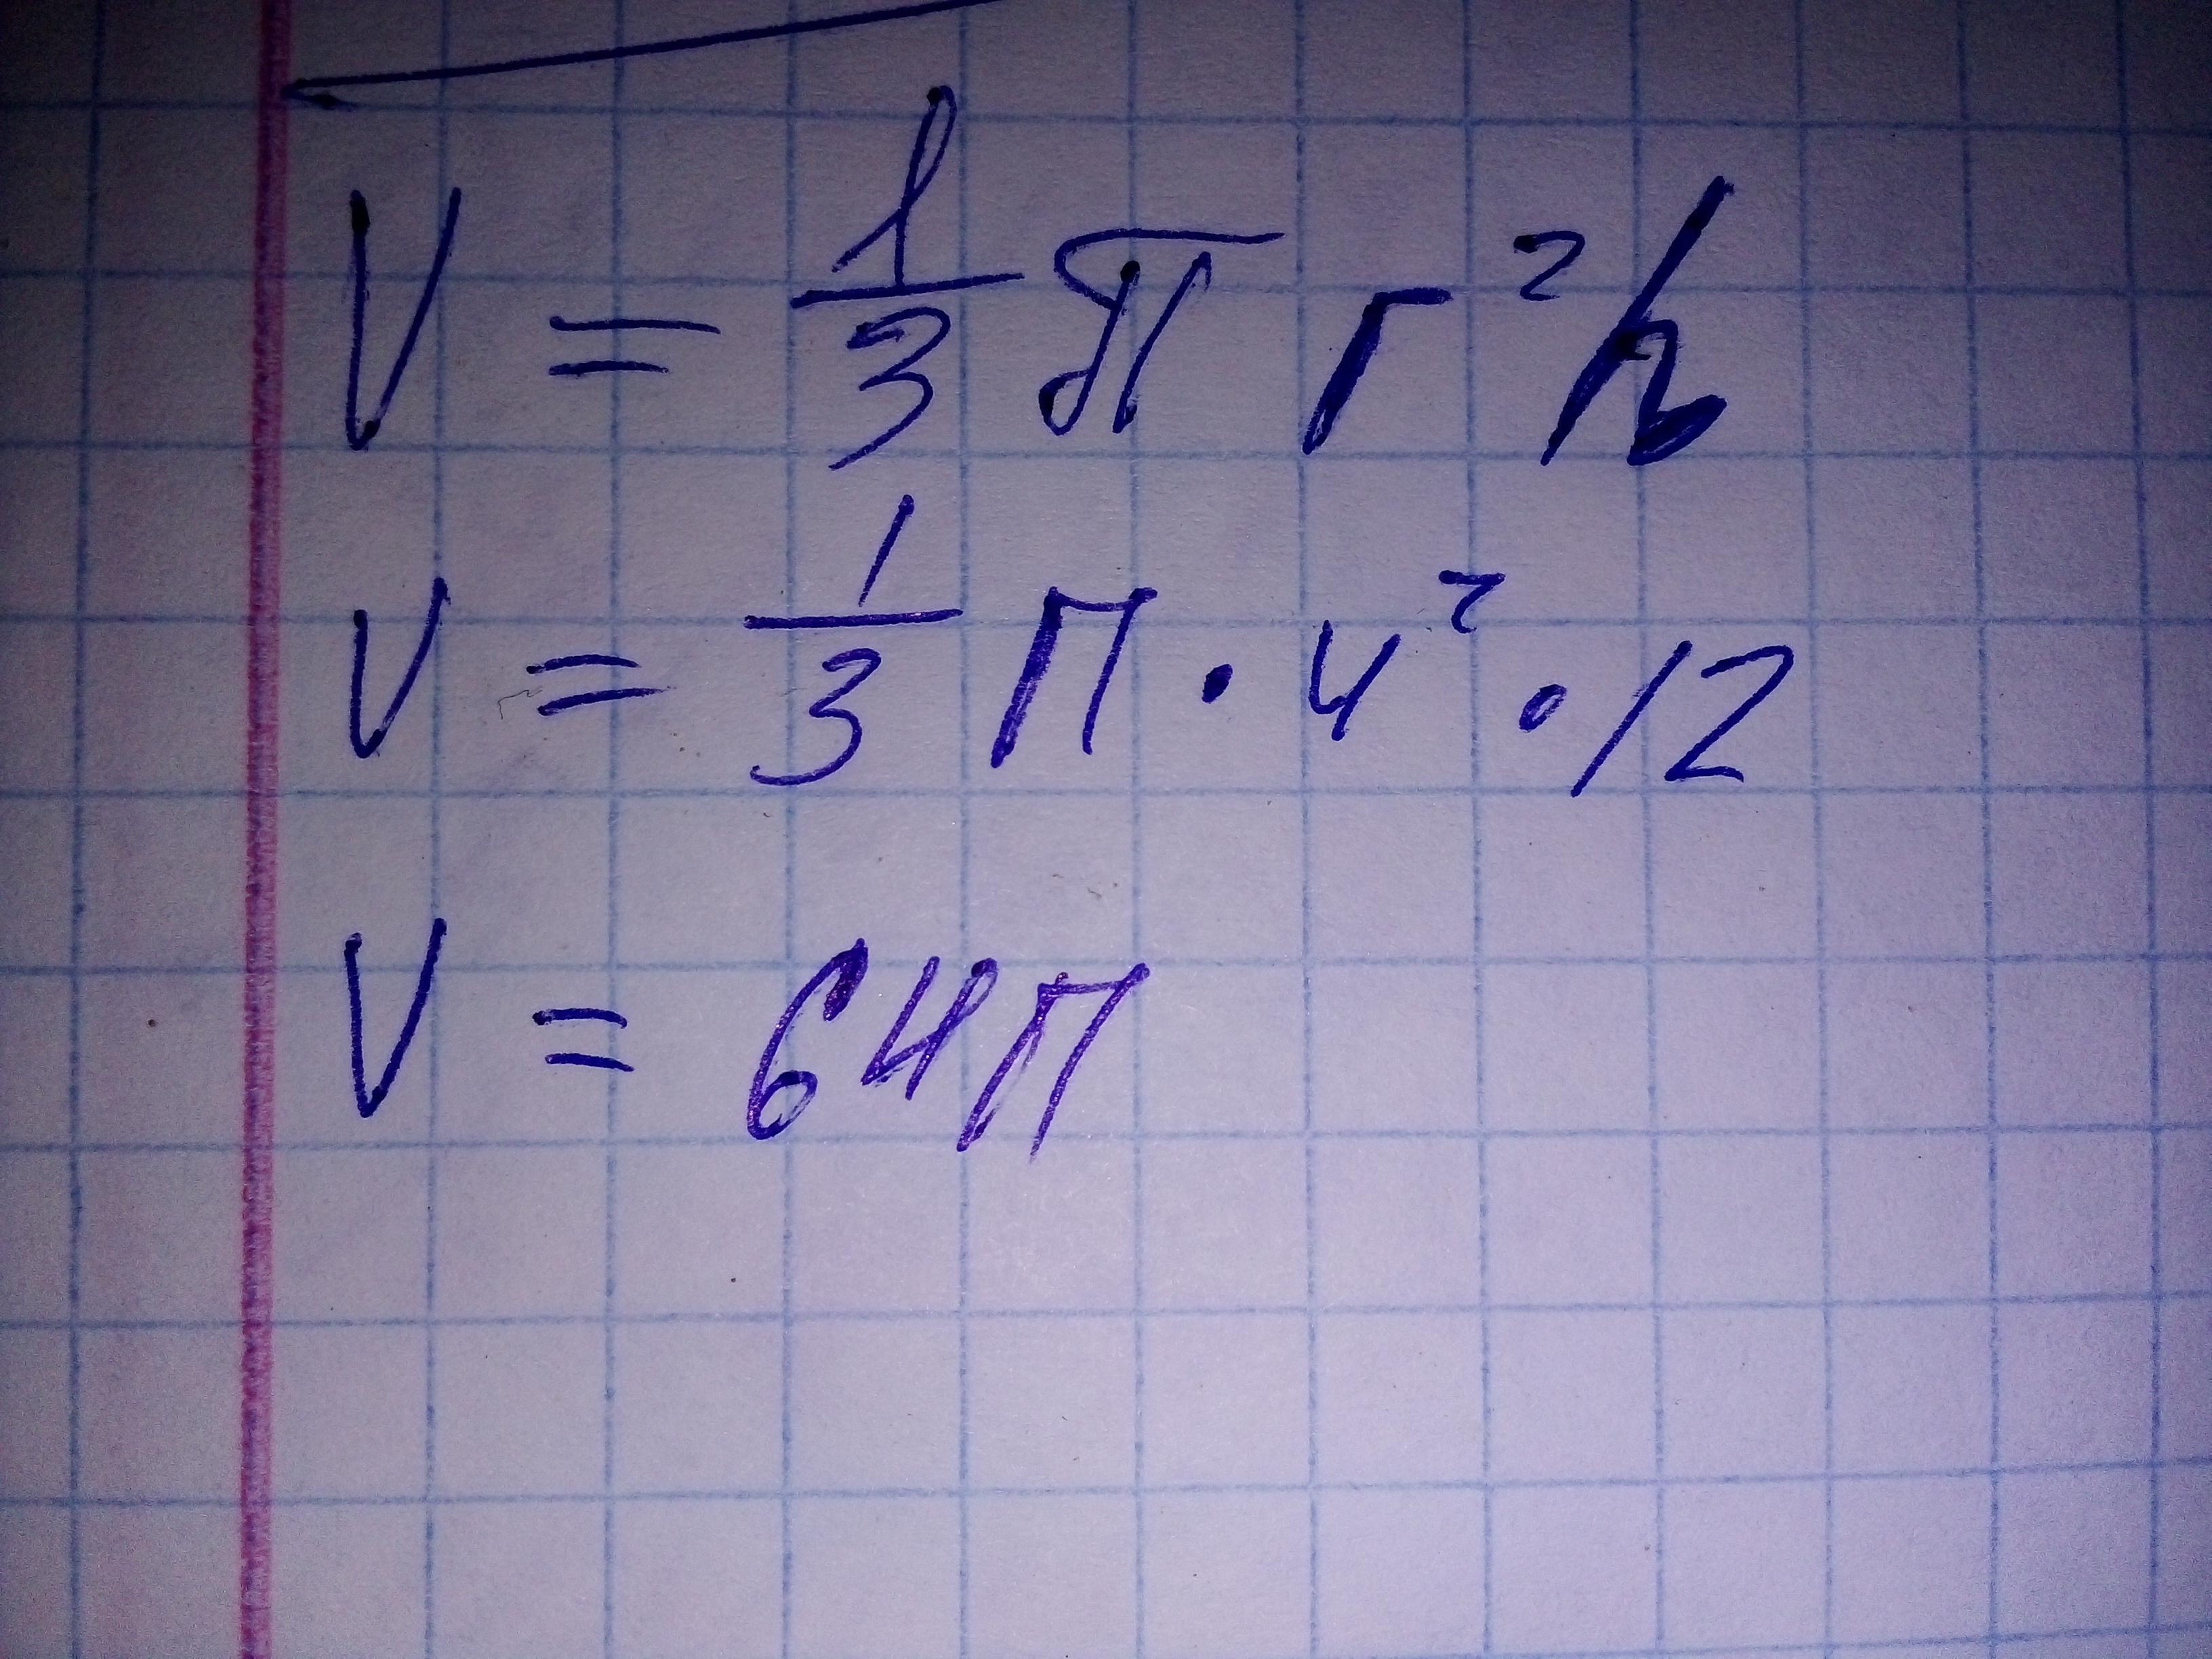 V = 1/3 π r²h
V = 1/3 π · 4² · 12
V = 64π